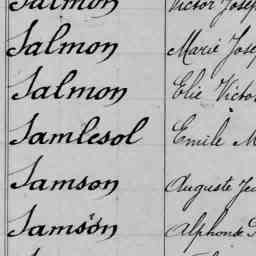 Salmon Victor Josep
Salmon Marie Josep
Salmon Elie Victo
Samlesol Emile M
Samson Auguste Je
Samson Alphonse